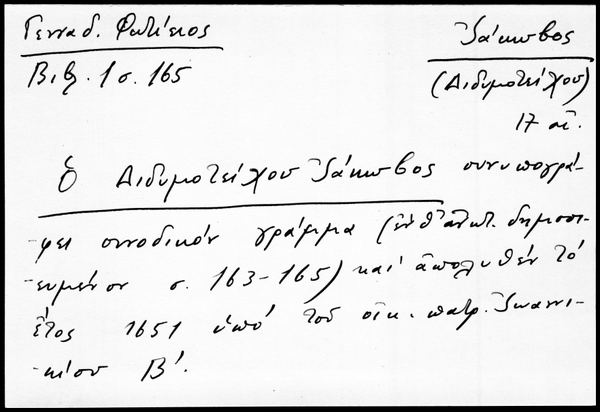 Γενναδ. Φωτίειος
Βιβ. 1 σ. 165
Ἰάκωβος
(Διδυμοτείχου)
17 αἰ.
Ὁ Διδυμοτείχου Ἰάκωβος συνυπογρά-
-φει συνοδικόν γράμμα (ἐνθ' ἀνωτ. δημοσι-
-ευμένον σ. 163-165) καί ἀπολυθέν τό
ἔτος 1651 ὑπό τοῦ οἰκ. πατρ. Ἰωαννι-
-κίου Β΄.